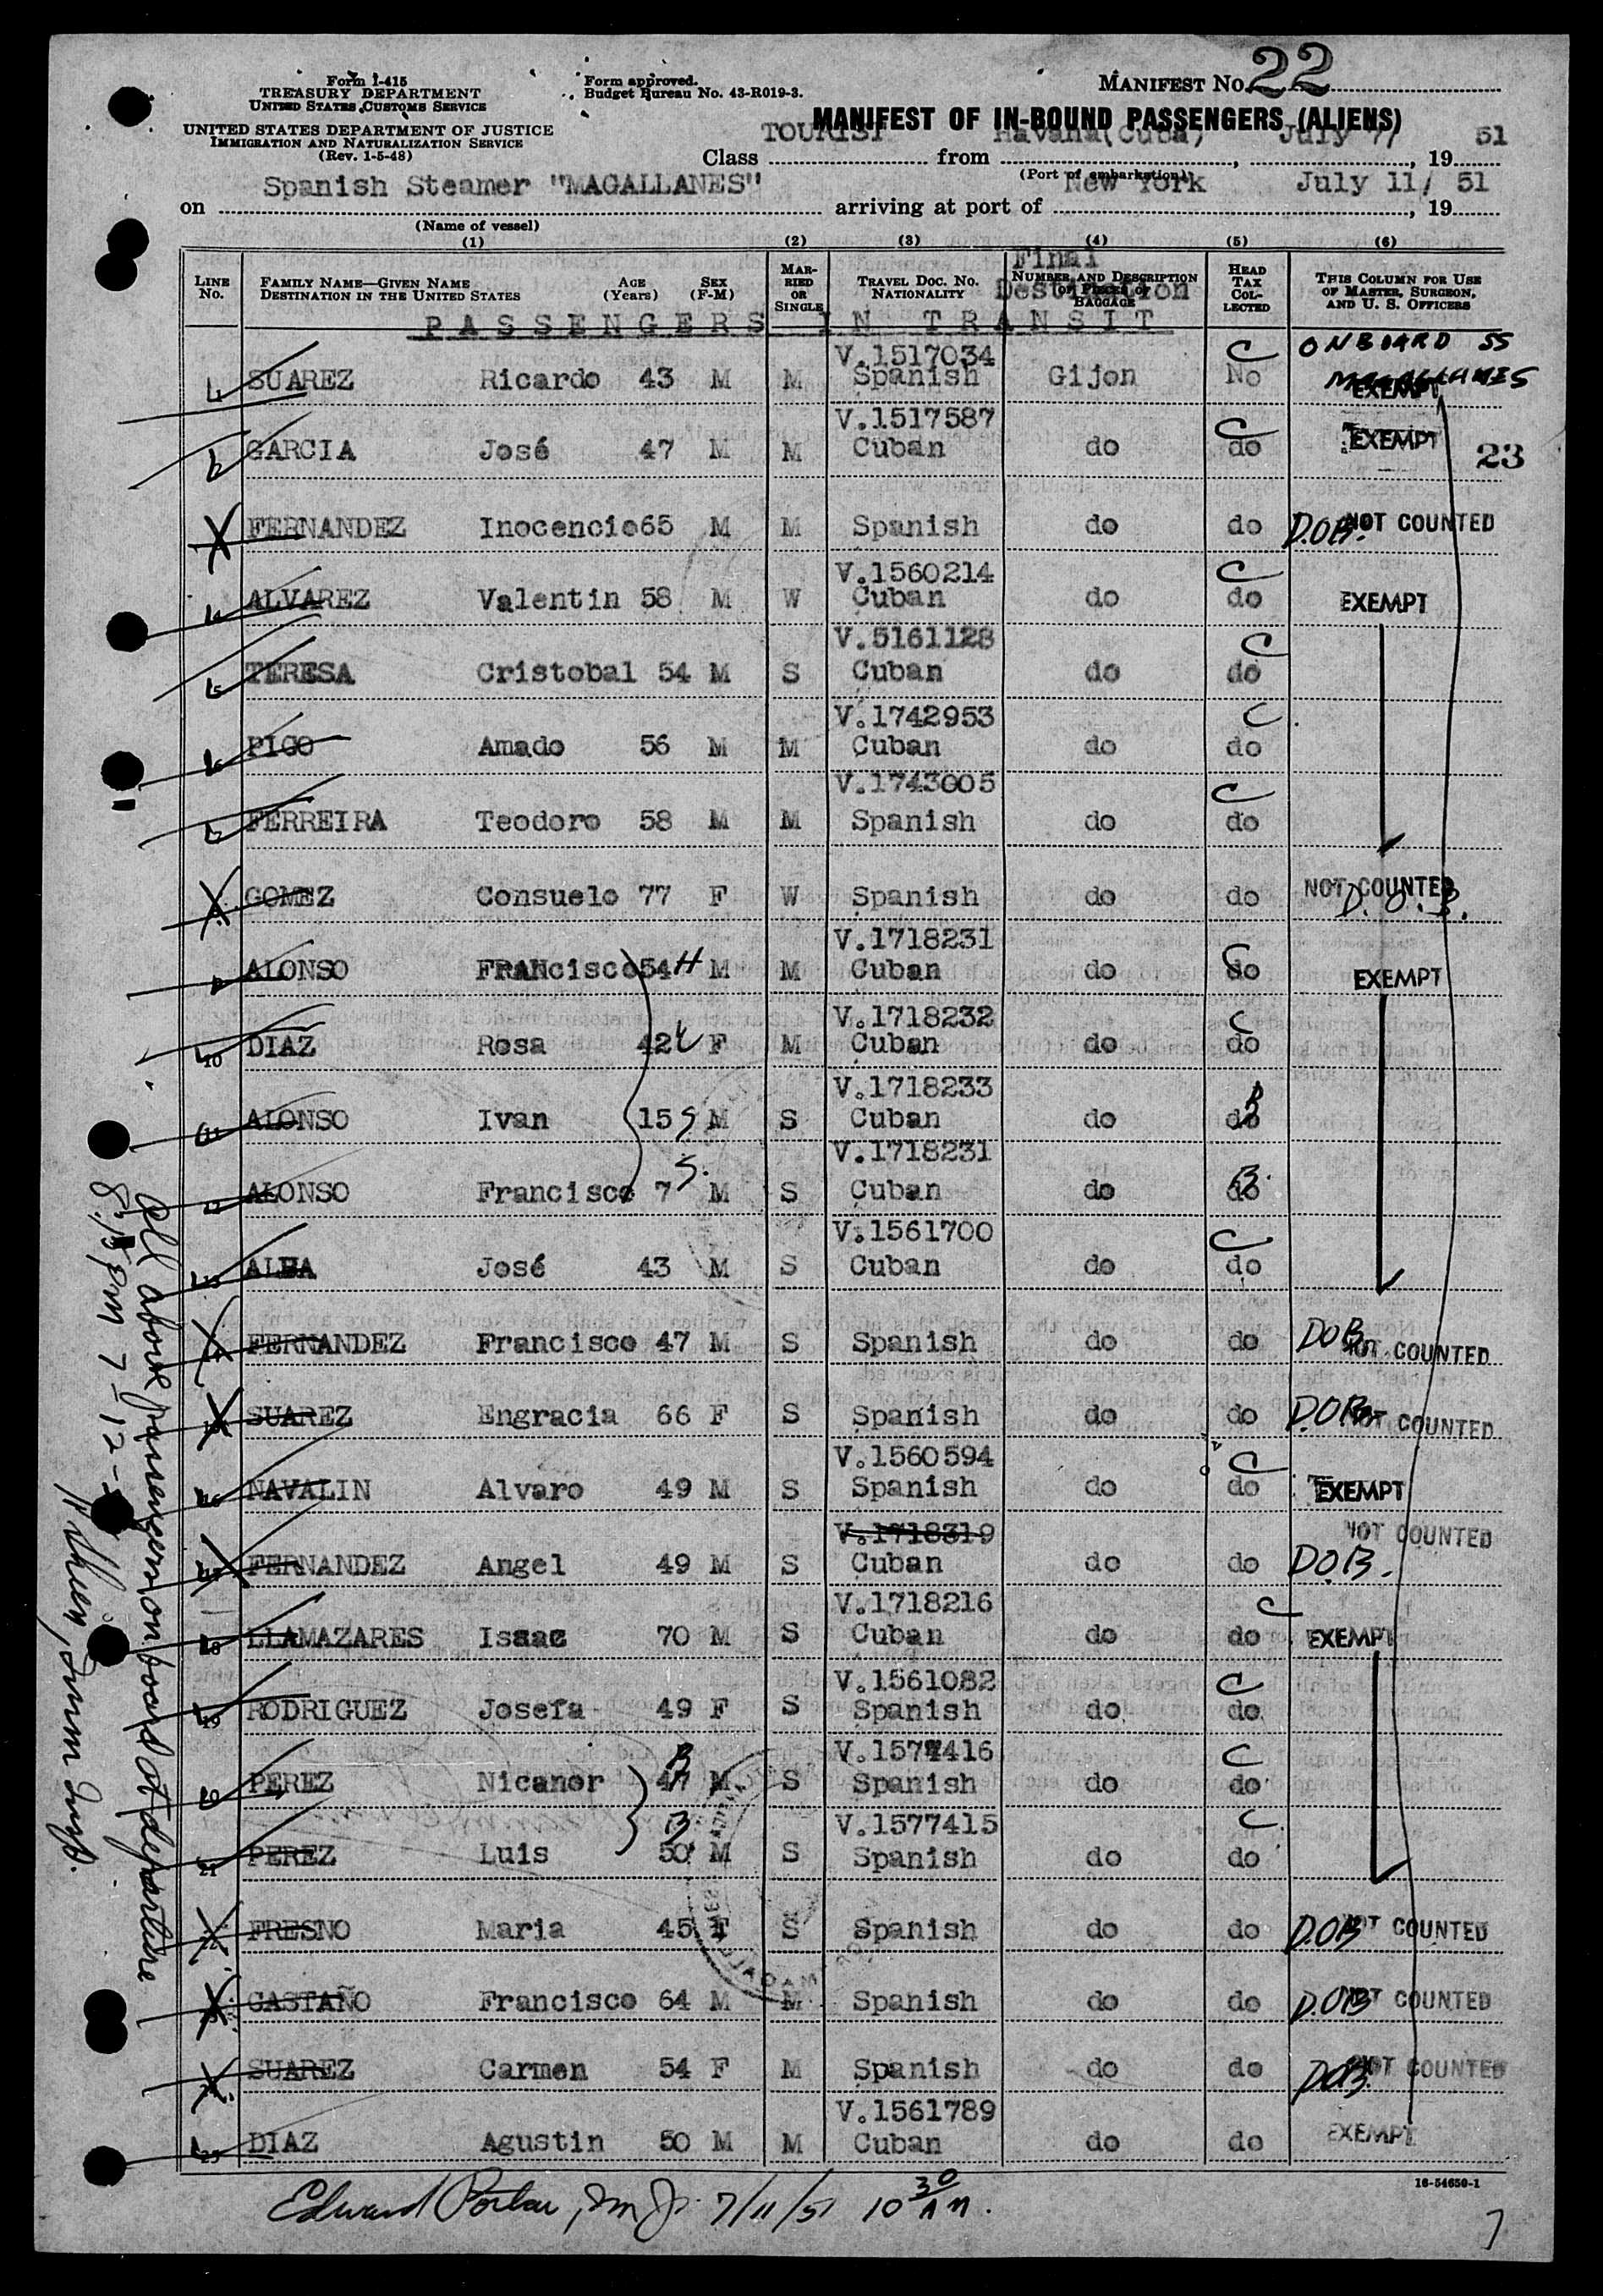 Form I-415
TREASURY DEPARTMENT
UNITED STATES CUSTOMS SERVICE
Form approved.
Budget Bureau No. 43-R019-3.
MANIFEST NO. 22
UNITED STATES DEPARTMENT OF JUSTICE
IMMIGRATION AND NATURALIZATION SERVICE
(Rev. 1-5-48)
MANIFEST OF IN-BOUND PASSENGERS (ALIENS)
Class TOURIST from Havana(Cuba) , July 7/ , 19 51
(Port of embarkation)
on Spanish Steamer "MAGALLANES" arriving at port of New York July 11/ , 19 51
(Name of vessel)
(1) (2) (3) (4) (5) (6)
LINE No. FAMILY NAME—GIVEN NAME DESTINATION IN THE UNITED STATES AGE (Years) SEX (F-M) MARRIED OR SINGLE TRAVEL DOC. NO. NATIONALITY NUMBER AND DESCRIPTION OF PIECES OF BAGGAGE Final Destination HEAD TAX COLLECTED THIS COLUMN FOR USE OF MASTER, SURGEON, AND U. S. OFFICERS
PASSENGERS IN TRANSIT
V.1517034 C ONBOARD SS
SUAREZ Ricardo 43 M M Spanish Gijon No MAGALLANES EXEMPT
V.1517587 C
2 GARCIA José 47 M M Cuban do do EXEMPT 23
FERNANDEZ Inocencio 65 M M Spanish do do D.O.B. NOT COUNTED
V.1560214 C
4 ALVAREZ Valentin 58 M W Cuban do do EXEMPT
V.5161128 C
5 TERESA Cristobal 54 M S Cuban do do
V.1742953 C
6 PICO Amado 56 M M Cuban do do
V.1743005 C
7 FERREIRA Teodoro 58 M M Spanish do do
GOMEZ Consuelo 77 F W Spanish do do NOT COUNTED D.O.B.
V.1718231 C
9 ALONSO FRANcisco 54 H M M Cuban do do EXEMPT
V.1718232 C
10 DIAZ Rosa 42 F M Cuban do do
V.1718233
11 ALONSO Ivan 15 S M S Cuban do do B
V.1718231
12 ALONSO Francisco 7 S. M S Cuban do do B
V.1561700 C
13 ALBA José 43 M S Cuban do do
FERNANDEZ Francisco 47 M S Spanish do do DOB NOT COUNTED
SUAREZ Engracia 66 F S Spanish do do DOB NOT COUNTED
V.1560594 C
16 NAVALIN Alvaro 49 M S Spanish do do EXEMPT
V.1718319 NOT COUNTED
17 FERNANDEZ Angel 49 M S Cuban do do DOB.
V.1718216 C
18 LLAMAZARES Isaac 70 M S Cuban do do EXEMPT
V.1561082 C
19 RODRIGUEZ Josefa 49 F S Spanish do do
B V.1577416 C
20 PEREZ Nicanor 47 M S Spanish do do
B V.1577415 C
21 PEREZ Luis 50 M S Spanish do do
22 FRESNO Maria 45 F S Spanish do do DOB NOT COUNTED
CASTAÑO Francisco 64 M M Spanish do do D.OB NOT COUNTED
SUAREZ Carmen 54 F M Spanish do do DOB NOT COUNTED
V.1561789
25 DIAZ Agustin 50 M M Cuban do do EXEMPT
16-54650-1
Edward Porter, Imm Is. 7/11/51 10 30 AM.
7
All above passengers on board at departure
8:15 PM 7-12-
Imm Insp.